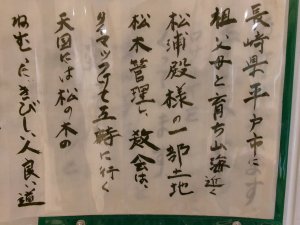 長崎県平戸市にます
祖父母と育ち山海近く
松浦殿様の一部土地
松木管理と教会は、
タマツケて五時に行く
天国には松の木の
ねむきびしい人良い道